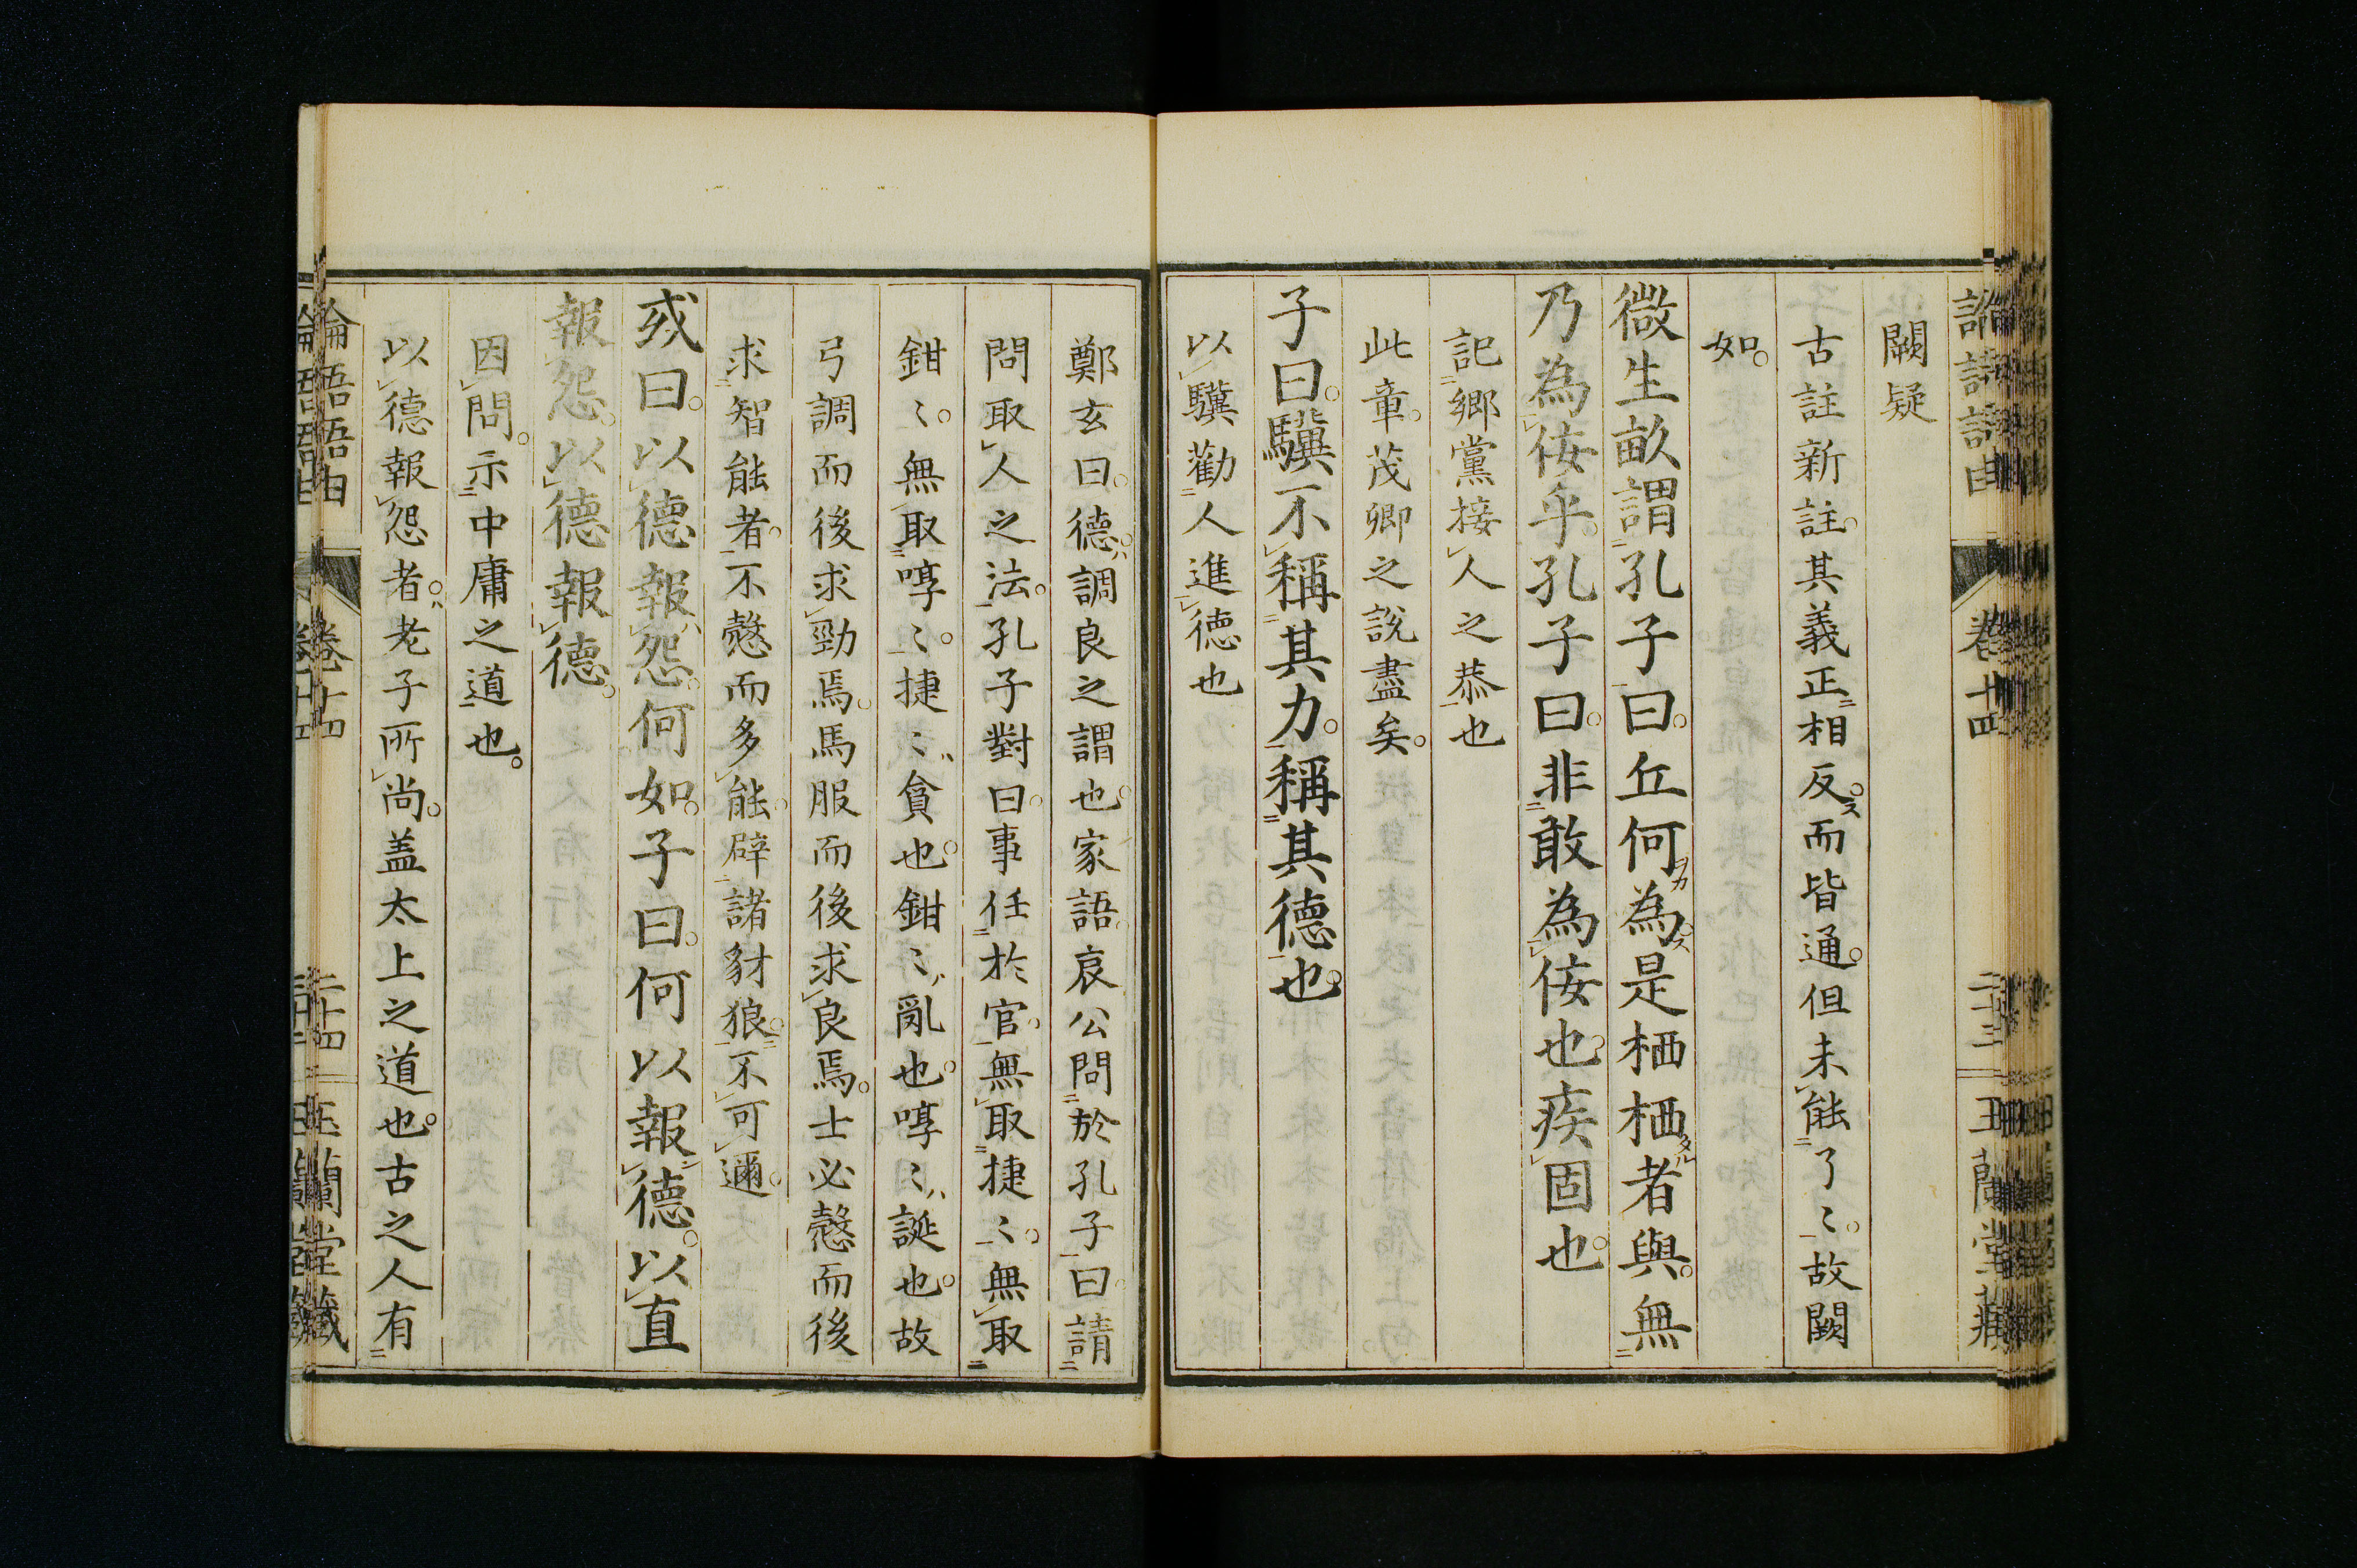 闕疑
古註新註其義正相反而皆通但未能了〻故闕
如
微生畝謂孔子曰丘何為是栖栖者與無
乃為佞乎孔子曰非敢為佞也疾固也
記鄉黨接人之恭也
此章茂卿之說盡矣
子曰驥不稱其力稱其德也
以驥勸人進德也
鄭玄曰德調良之謂也家語哀公問於孔子曰請
問取人之法孔子對曰事任於官無取捷〻無取
鉗〻無取啍〻捷〻貪也鉗〻亂也啍〻誕也故
弓調而後求勁焉馬服而後求良焉士必愨而後
求智能者不愨而多能辟諸豺狼不可邇
或曰以德報怨何如子曰何以報德以直
報怨以德報德
因問示中庸之道也
以德報怨者老子所尚盖太上之道也古之人有
論語語由 卷十四 二十四 玉蘭堂藏